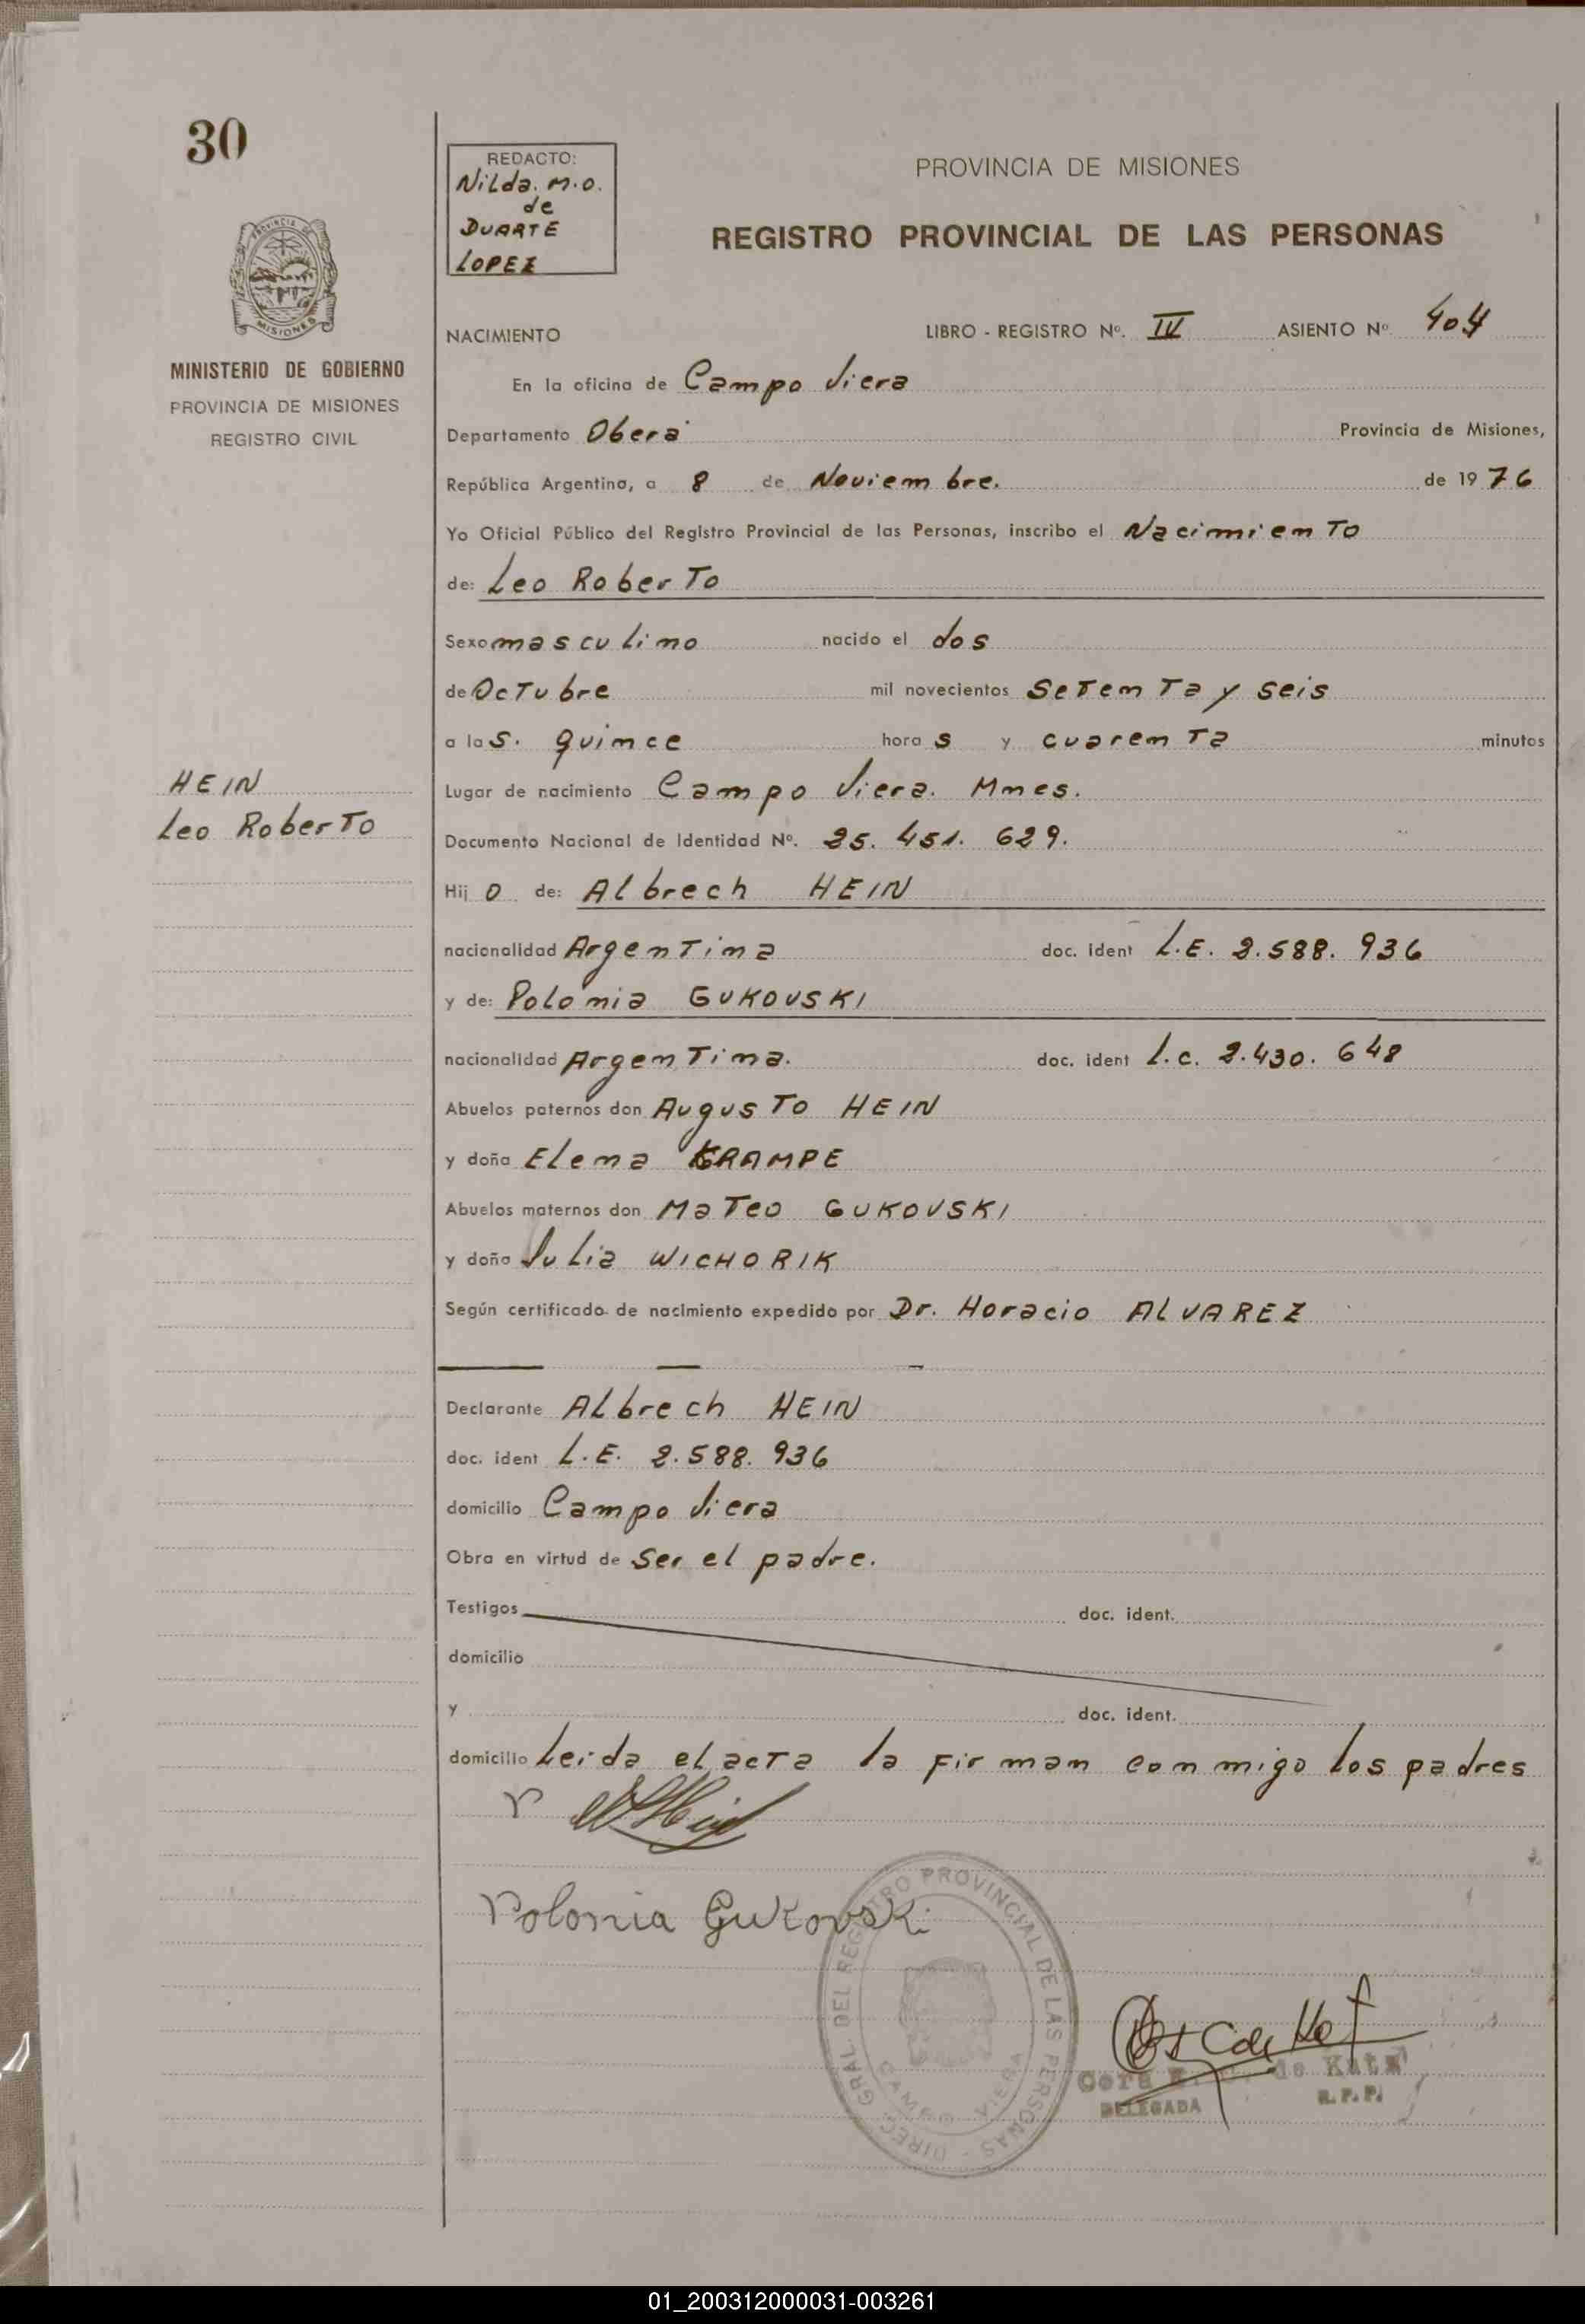 30
REDACTO:
Nilda. M.O.
de
DUARTE
LOPEZ
PROVINCIA DE MISIONES
REGISTRO PROVINCIAL DE LAS PERSONAS
PROVINCIA DE
MISIONES
MINISTERIO DE GOBIERNO
PROVINCIA DE MISIONES
REGISTRO CIVIL
NACIMIENTO LIBRO - REGISTRO Nº. IV ASIENTO Nº 404
En la oficina de Campo Viera
Departamento Oberá Provincia de Misiones,
República Argentina, a 8 de Noviembre. de 1976
Yo Oficial Público del Registro Provincial de las Personas, inscribo el Nacimiento
de: Leo Roberto
Sexo masculino nacido el dos
de Octubre mil novecientos Setenta y seis
a las. quince horas y cuarenta minutos
HEIN
Leo Roberto
Lugar de nacimiento Campo Viera. Mnes.
Documento Nacional de Identidad Nº. 25.451.629.
Hijo de: Albrech HEIN
nacionalidad Argentina doc. ident L.E. 2.588.936
y de: Polonia GUKOVSKI
nacionalidad Argentina. doc. ident L.C. 2.430.648
Abuelos paternos don Augusto HEIN
y doña Elena KRAMPE
Abuelos maternos don Mateo GUKOVSKI
y doña Julia WICHORIK
Según certificado de nacimiento expedido por Dr. Horacio ALVAREZ
Declarante Albrech HEIN
doc. ident L.E. 2.588.936
domicilio Campo Viera
Obra en virtud de Ser el padre.
Testigos doc. ident.
domicilio
y doc. ident.
domicilio Leida el acta la firman conmigo los padres
Polonia Gukovski
DIREC. GRAL. DEL REGISTRO PROVINCIAL DE LAS PERSONAS -
CAMPO VIERA
de Katz
DELEGADA R.P.P.
01_200312000031-003261